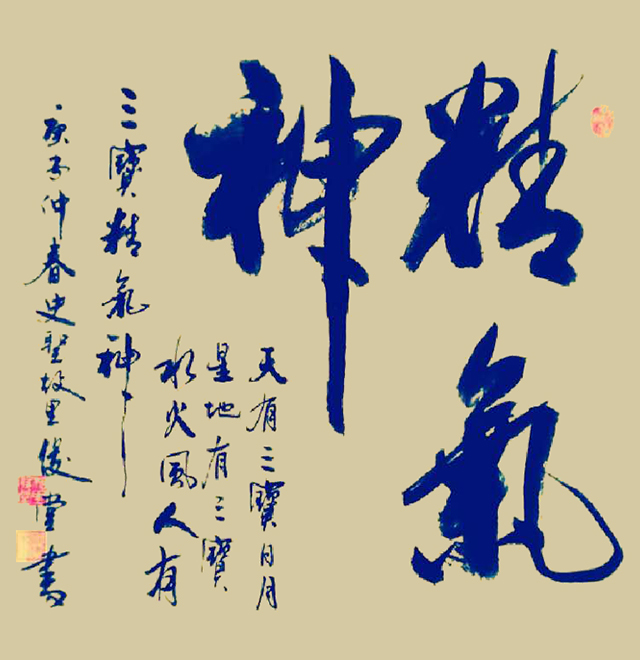 精氣
神
天有三寶日月
星地有三寶
水火風人有
三寶精氣神
庚子仲春史聖故里俊堂書